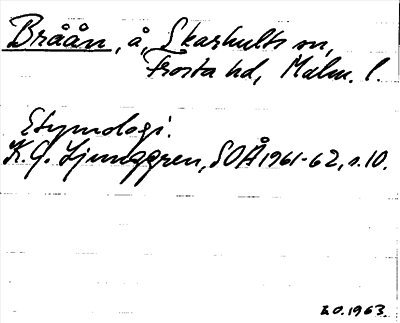 Bråån, å, Skarhults sn,
Frosta hd, Malm. l.
Etymologi:
K.G. Ljunggren, SOÅ 1961-62, s. 10.
1963.